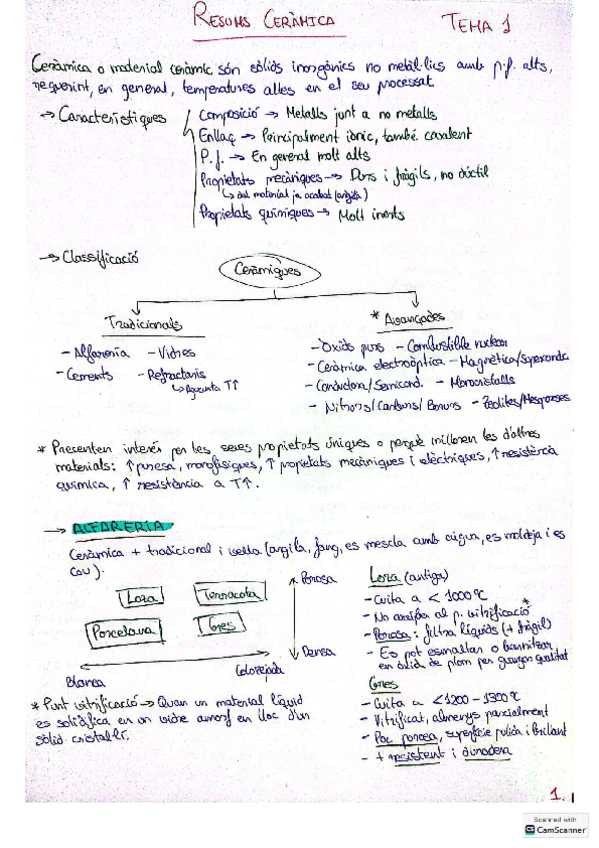 RESUMS CERÀMICA
TEMA 1
Ceràmica o material ceràmic són sòlids inorgànics no metàl·lics amb p.f. alts,
requerint, en general, temperatures altes en el seu processat.
→ Característiques
Composició → Metalls junt a no metalls
Enllaç → Principalment iònic, també covalent
P.f. → En general molt alts
Propietats mecàniques → Durs i fràgils, no dúctil
↳ del material ja acabat (argila)
Propietats químiques → Molt inerts
→ Classificació
Ceràmiques
Tradicionals
* Avançades
- Alfareria - Vidres
- Cements - Refractaris
↳ Aguanta T↑
- Òxids purs - Combustible nuclear
- Ceràmica electroòptica - Magnètica/Supercondc
- Conductora/Semicond. - Monocristalls
- Nitrurs/Carburs/Borurs - Zeolites/Mesoporoses
* Presenten interés per les seves propietats úniques o perquè milloren les d'altres
materials: ↑ puresa, monofàsiques, ↑ propietats mecàniques i elèctriques, ↑ resistència
química, ↑ resistència a T↑.
→ ALFARERIA
Ceràmica + tradicional i vella (argila, fang, es mescla amb aigua, es moldeja i es
cou).
Loza
Terracota
Porcelana
Gres
Porosa
Densa
Blanca
Colorejada
* Punt vitrificació → Quan un material líquid
es solidifica en un vidre amorf en lloc d'un
sòlid cristal·lí.
Loza (antiga)
- Cuita a < 1000 ºC
- No arriba al p. vitrificació *
- Porosa: filtra líquids (+ fràgil)
- Es pot esmaltar o barnitzar
en òxid de plom per guanyar qualitat
Gres
- Cuita a <1200 - 1300 ºC
- Vitrificat, almenys parcialment
- Poc porosa, superfície polida i brillant
- + resistent i duradera
1.
Scanned with
CamScanner